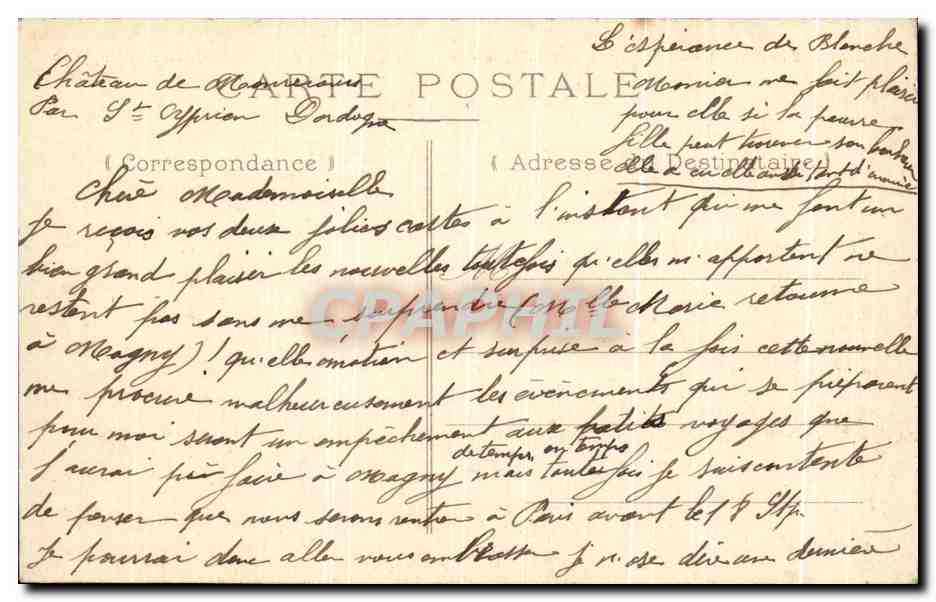 L'espérance de Blanche
Monier me fait plaisir
pour elle si la pauvre
fille peut trouver son bonheur
elle a eu
Château de
Par St Cyprien Dordogne
CARTE POSTALE
(Correspondance)
(Adresse du Destinataire)
Chère Mademoiselle
Je reçois vos deux jolies cartes à l'instant qui me font un
bien grand plaisir les nouvelles toutefois qu'elles m'apportent ne
restent pas sans me surprendre (Melle Marie retourne
à Magny)! qu'elle émotion et surprise à la fois cette nouvelle
me procure malheureusement les évènements qui se préparent
pour moi seront un empêchement aux petits voyages que
de temps en temps
j'aurai pû faire à Magny mais toutefois je suis contente
de penser que nous serons rentrer à Paris avant le 18 Sep.
Je pourrai donc aller vous embrasser je n'ose dire une dernière
CPAPHIL